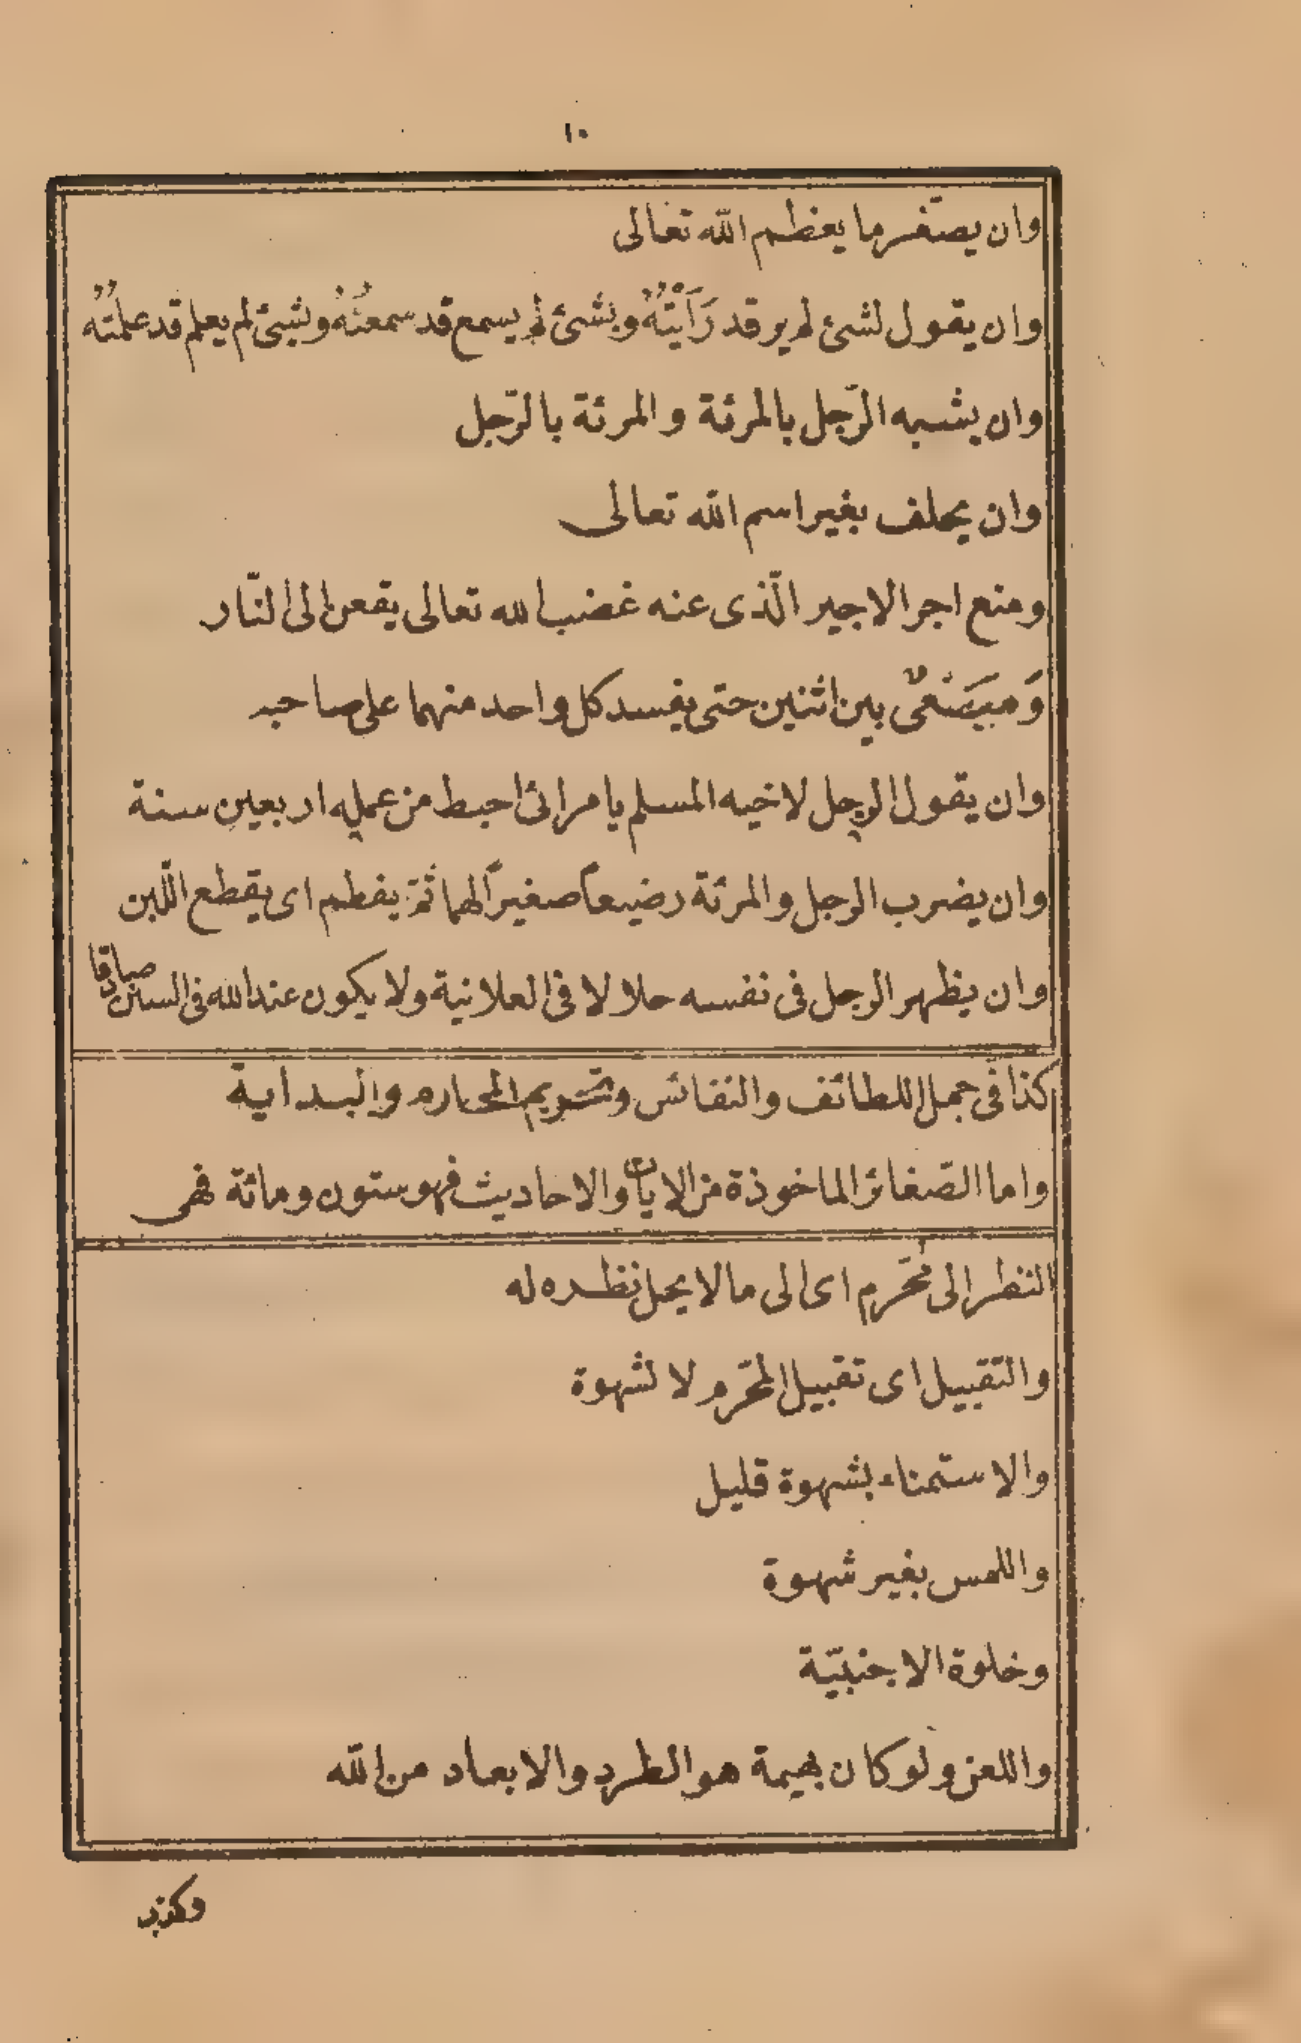 ١٠
وان يصّغر ما يعظم الله تعالى
وان يقول لشئ لم ير قد رَأَيْتُهُ وبشئ لم يسمع قد سمعتُهُ وبشئ لم يعلم قد علمتُهُ
وان يشبه الرّجل بالمرئة والمرئة بالرّجل
وان يحلف بغير اسم الله تعالى
ومنع اجر الاجير الّذى عنه غضب الله تعالى يقعن الى النّار
بين اثنين حتى يفسد كل واحد منهما على صاحبه
وان يقول الرجل لاخيه المسلم يا مرائى احبط من عمله اربعين سنة
وان يضرب الرجل والمرئة رضيعاً صغيراً لهما ثمّ يفطم اى يقطع اللّبن
وان يظهر الرجل فى نفسه حلالا فى العلانية ولا يكون عند الله فى السين صادقا
كذا فى جمل اللطائف والنفائس وتحريم المحارم والبداية
واما الصّغائر الماخوذة من الايات والاحاديث فهو ستون ومائة فهى
النظر الى مُحّرم اى الى مالا يحل نظره له
والتقبيل اى تقبيل المحّرم لا لشهوة
والاستمناء بشهوة قليل
واللمس بغير شهوة
وخلوة الاجنبيّة
واللعن ولو كان بهيمة هو الطرد والابعاد من الله
وكذب